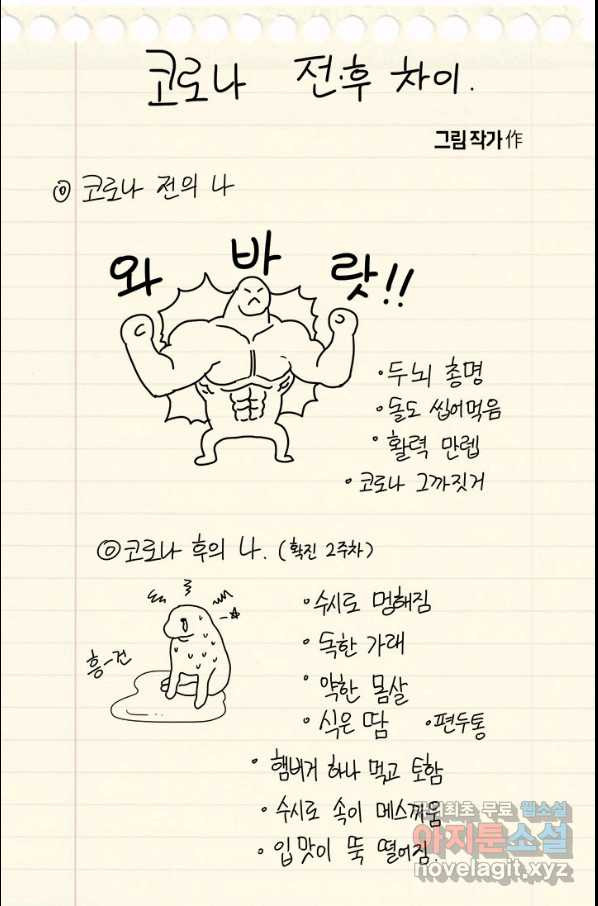 코로나 전·후 차이.
그림작가作
◎ 코로나 전의 나
와 바 랏!!
• 두뇌 총명
• 돌도 씹어먹음
• 활력 만렙
• 코로나 그까짓거
◎ 코로나 후의 나. (확진 2주차)
• 수시로 멍해짐
흥-건
• 독한 가래
• 약한 몸살
• 식은 땀 • 편두통
• 햄버거 하나 먹고 토함
• 수시로 속이 메스꺼움
• 입맛이 뚝 떨어짐.
국내최초 무료 웹소설
아지툰소설
novelagit.xyz